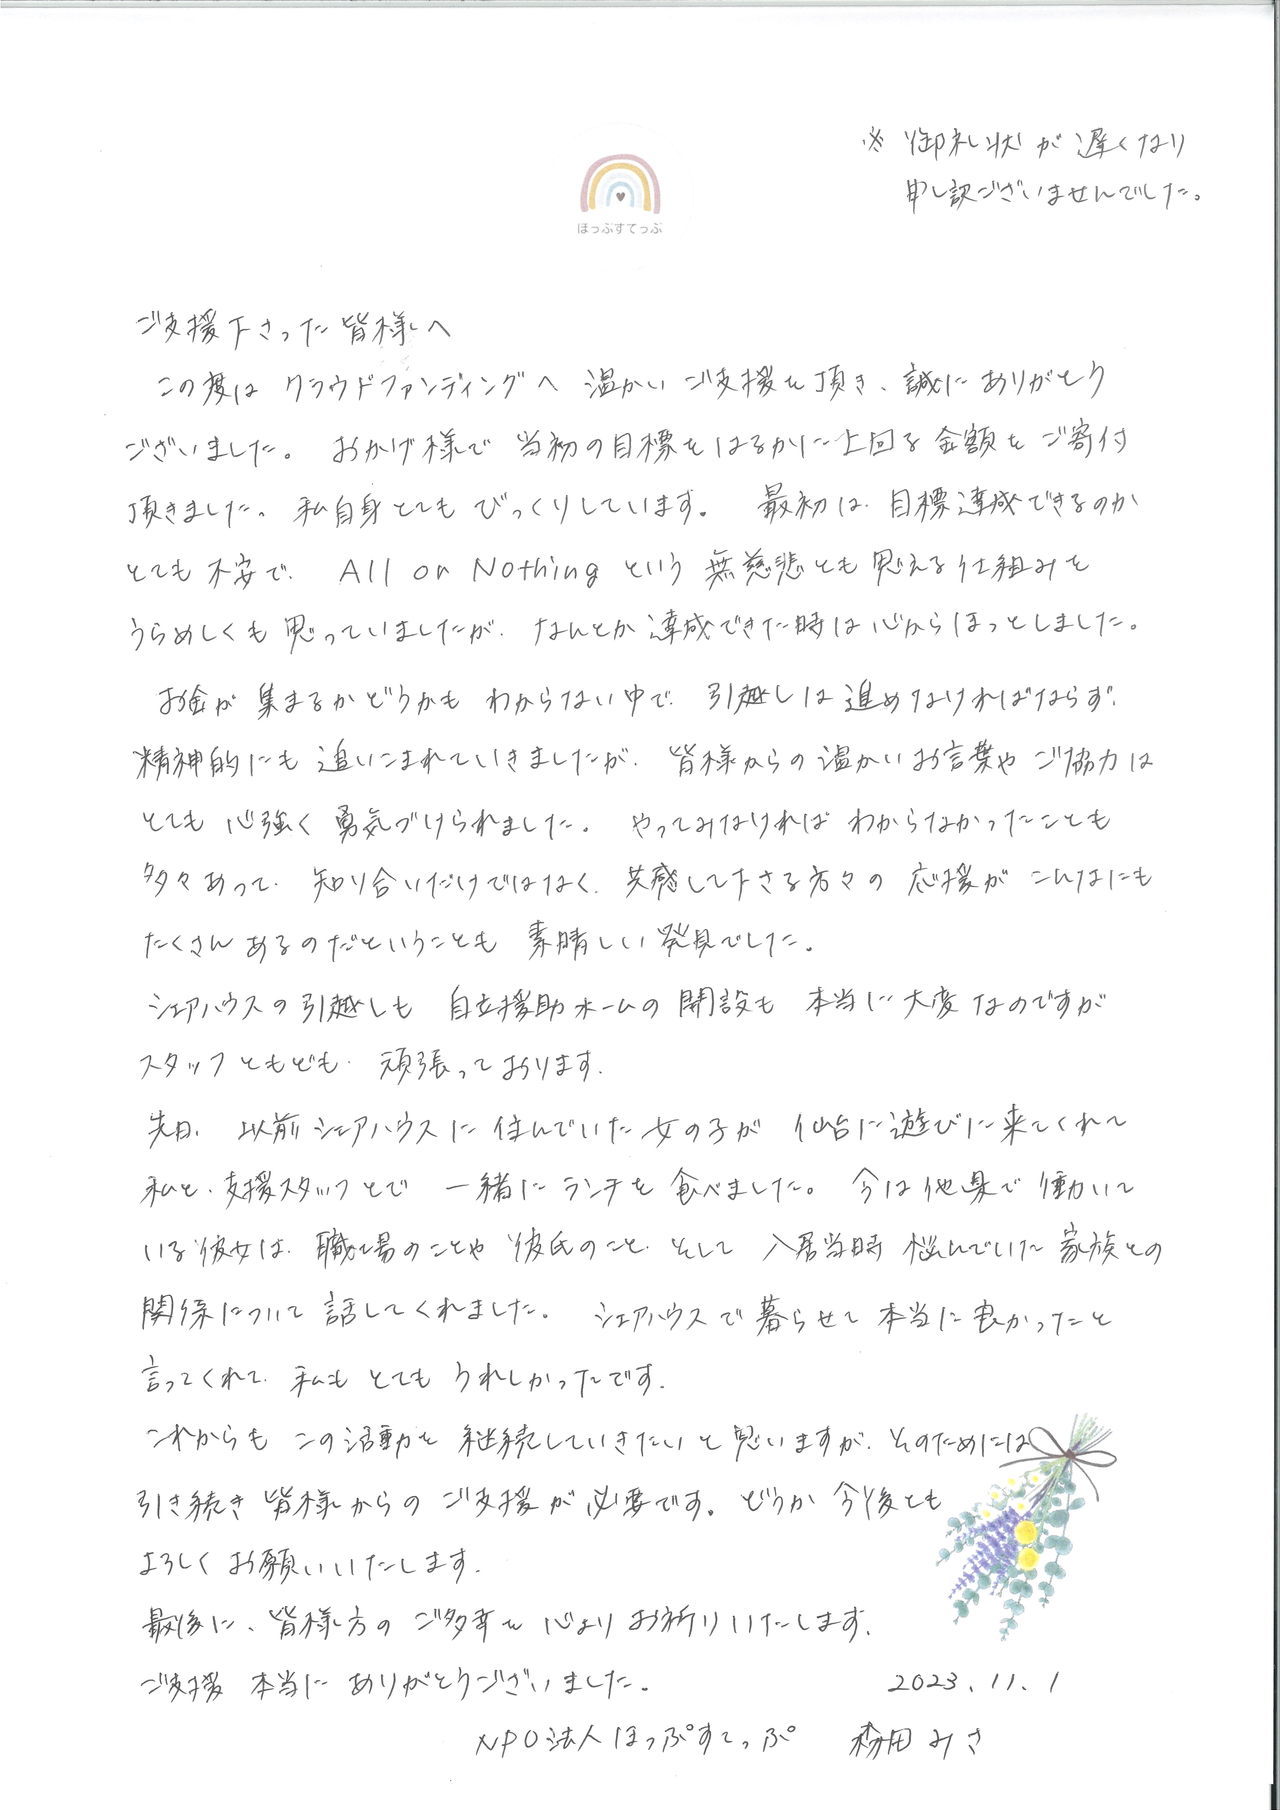 ※ 御礼状が遅くなり
申し訳ございませんでした。
ほっぷすてっぷ
ご支援下さった皆様へ
この度は クラウドファンディングへ 温かい ご支援を頂き、誠に ありがとう
ございました。 おかげ様で 当初の目標を はるかに上回る 金額を ご寄付
頂きました。私自身とても びっくりしています。 最初は、目標達成できるのか
とても 不安で、 All or Nothing という 無慈悲とも思える仕組みを
うらめしくも 思っていましたが、なんとか達成できた時は心からほっとしました。
お金が 集まるかどうかも わからない中で、引越しは進めなければならず、
精神的にも 追いこまれていきましたが、皆様からの温かいお言葉や ご協力は
とても 心強く 勇気づけられました。 やってみなければ わからなかったことも
多々あって、知り合いだけではなく、共感して下さる方々の 応援が こんなにも
たくさん あるのだということも 素晴しい発見でした。
シェアハウスの引越しも 自立援助ホームの開設も 本当に大変なのですが
スタッフともども、頑張っております。
先日、以前シェアハウスに住んでいた女の子が 仙台に遊びに来てくれて
私と、支援スタッフとで 一緒に ランチを 食べました。 今は他県で働いて
いる彼女は、職場のことや 彼氏のこと、そして 入居当時 悩んでいた 家族との
関係について 話してくれました。 シェアハウスで暮らせて 本当に良かったと
言ってくれて、私も とても うれしかったです。
これからも この活動を 継続していきたいと思いますが、そのためには
引き続き 皆様からの ご支援が必要です。どうか 今後とも
よろしく お願いいたします。
最後に、皆様方の ご多幸を 心より お祈りいたします。
ご支援 本当に ありがとうございました。
2023.11.1
NPO法人ほっぷすてっぷ みさ